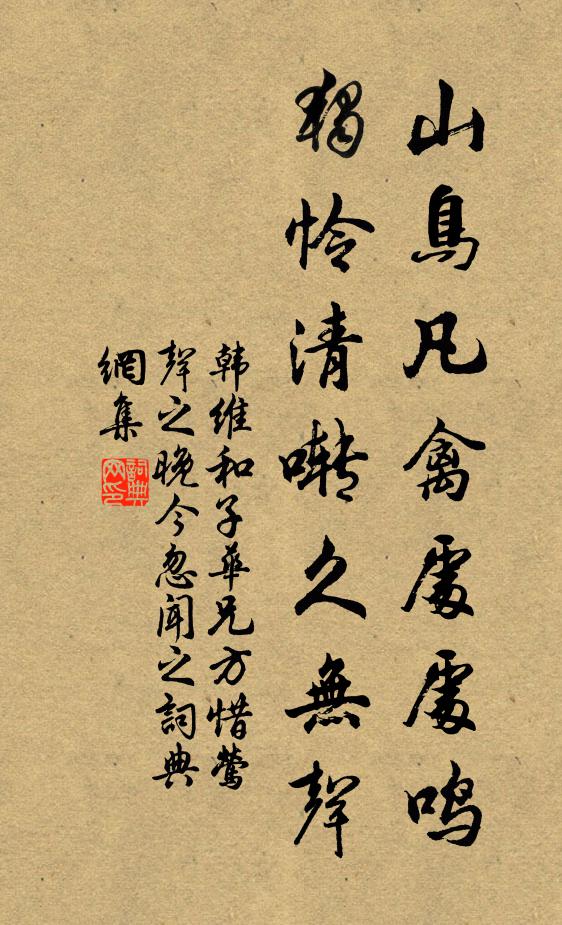 山鳥凡禽處處鳴
獨怜清囀久無聲
韩維和子華兄方惜鶯
聲之晚今忽聞之詞典
網集
詞典
网印